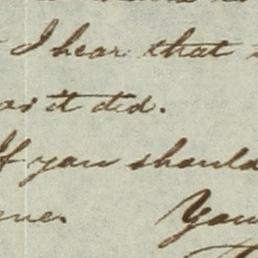 I hear that
as it did.
If you should
You